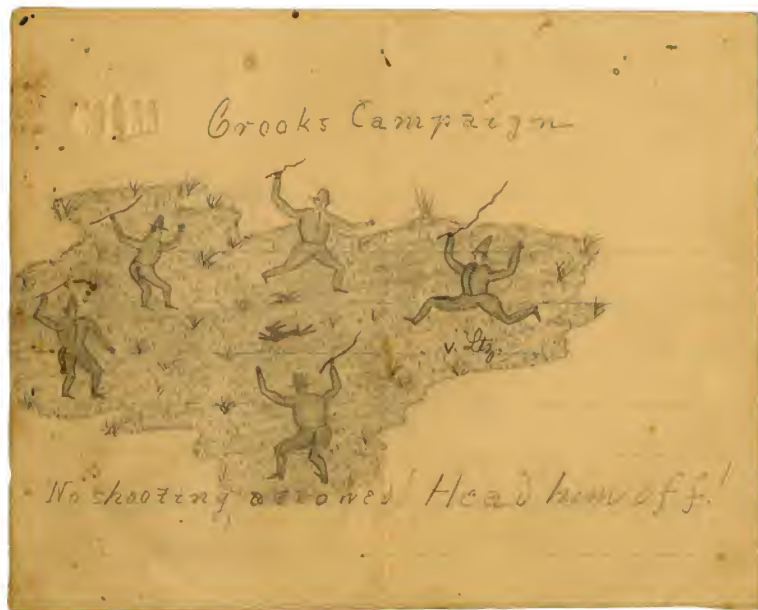 Crooks Campaign
v. Ltz.
No shooting allowed! Head him off!